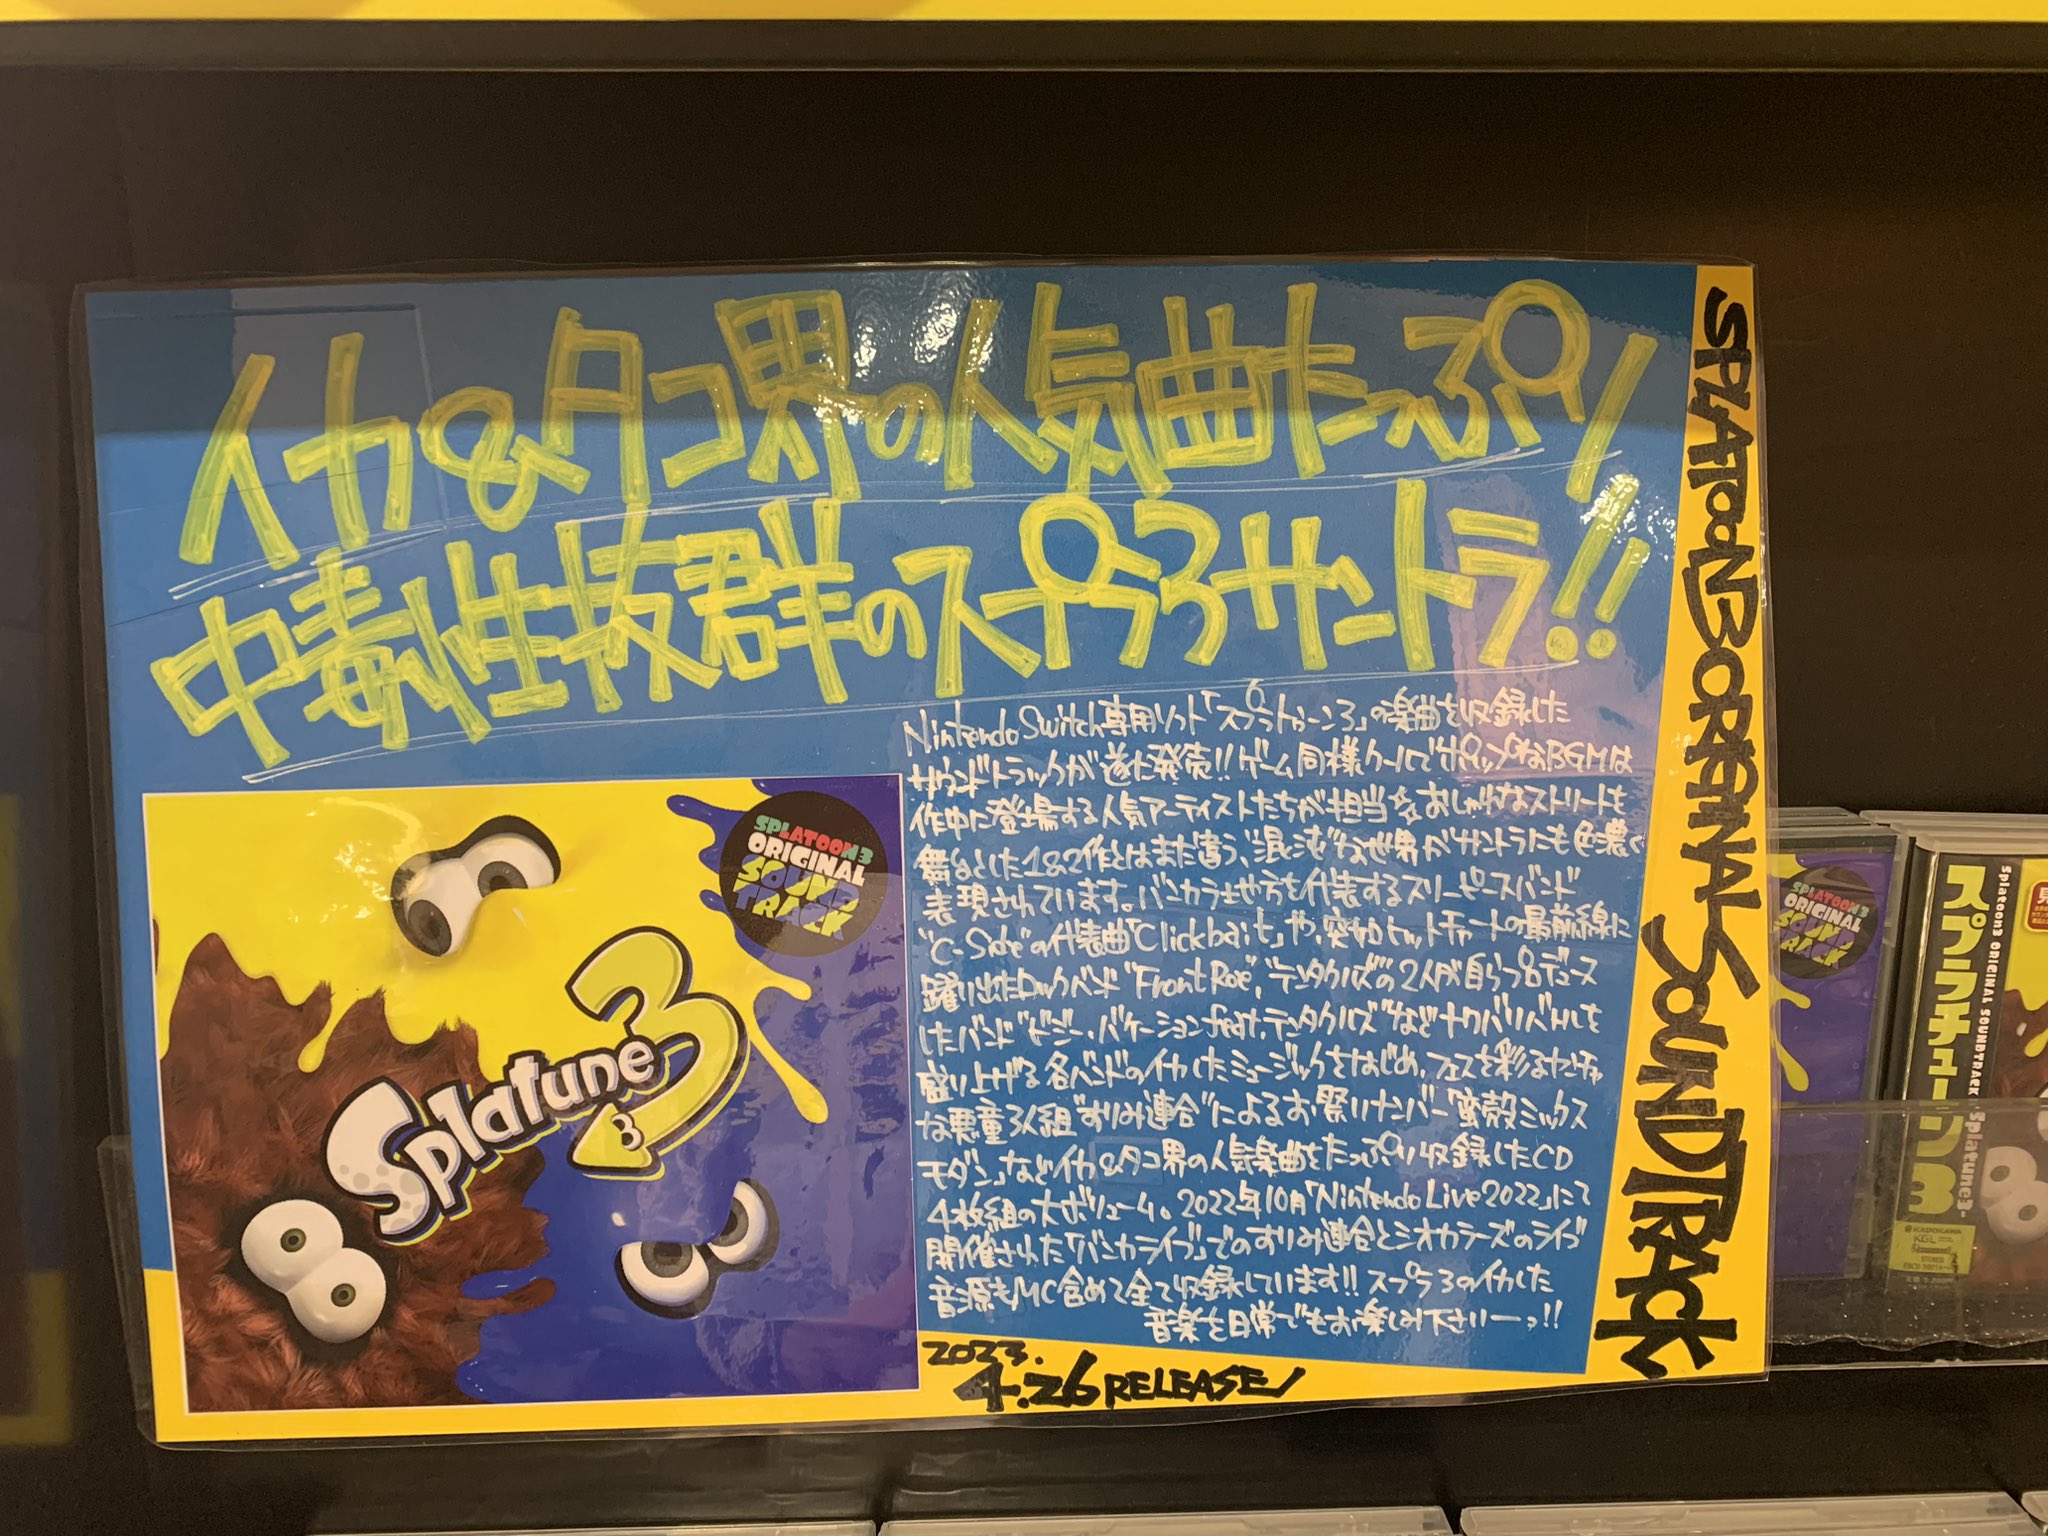 イカ&タコ界の人気曲たっぷり
中毒性抜群のスプラ3サントラ!!
SPLATOON3 ORIGINAL SOUNDTRACK
Nintendo Switch専用ソフト「スプラトゥーン3」の楽曲を収録した
サウンドトラックが遂に発売!!ゲーム同様クールでポップなBGMは
作中に登場する人気アーティストたちが担当☆おしゃれなストリートを
舞台とした1&2作とはまた違う、"混沌"な世界がサントラにも色濃く
表現されています。バンカラ地方を代表するスリーピースバンド
"C-Side"の代表曲「Clickbait」や、突如ヒットチャートの最前線に
躍り出たロックバンド"Front Roe"、テンタクルズの2人が自らプロデュース
したバンド"ドジー・バケーションfeat.テンタクルズ"などナワバリバトルを
盛り上げる各バンドのイカしたミュージックをはじめ、フェスを彩るヤンチャ
な悪童3人組"すりみ連合"によるお祭りナンバー「蛮殻ミックス
モダン」などイカ&タコ界の人気楽曲をたっぷり収録したCD
4枚組の大ボリューム。2022年10月「Nintendo Live 2022」にて
開催された「バンカライブ」でのすりみ連合とシオカラーズのライブ
音源もMC含めて全て収録しています!!スプラ3のイカした
音楽を日常でもお楽しみ下さいーっ!!
SPLATOON3
ORIGINAL
SOUND
TRACK
Splatune
3
2023.
4.26 RELEASE
SPLATOON3
ORIGINAL
SOUND
TRACK
スプラチューン3
Splatoon3 ORIGINAL SOUNDTRACK -Splatune3-
KADOKAWA
KGL
STEREO